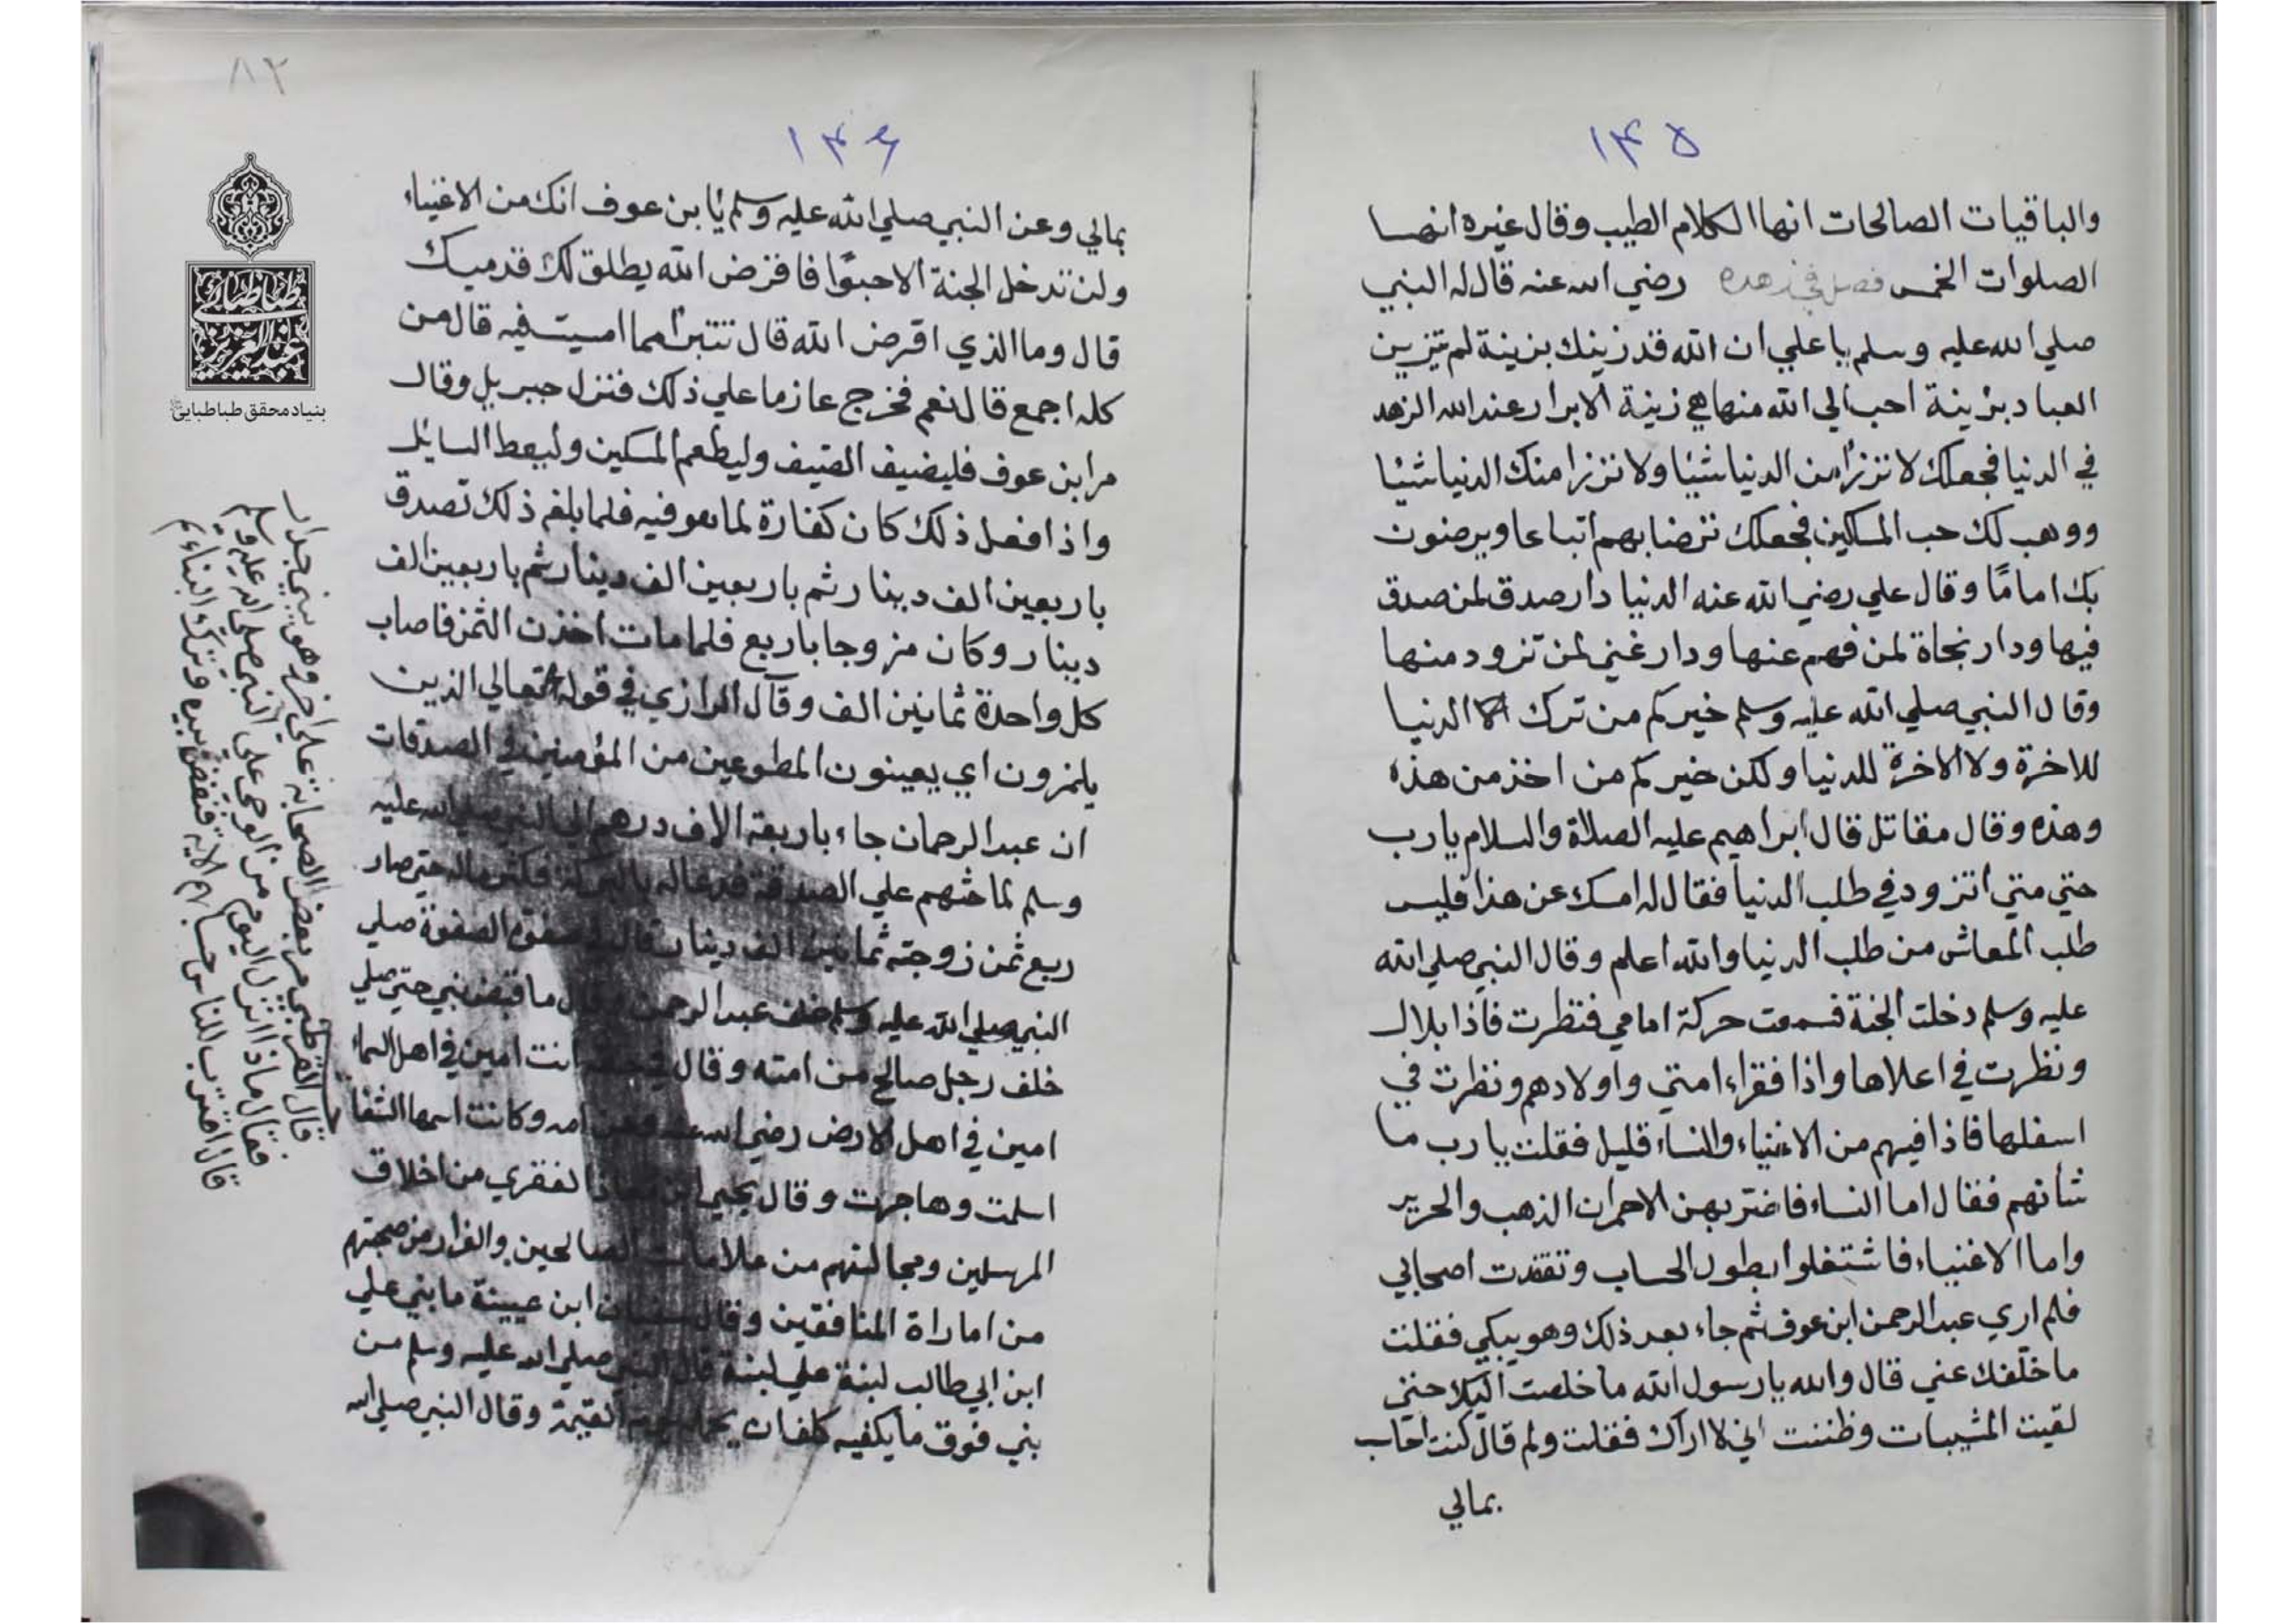 ١٤٥
والباقيات الصالحات انها الكلام الطيب وقال غيره انها
الصلوات الخمس فصل في زهده رضي الله عنه قال له النبي
صلي الله عليه وسلم يا علي ان الله قد زينك بزينة لم تتزين
العباد بزينة احب الي الله منها هي زينة الابرار عند الله الزهد
في الدنيا فجعلك لا تزرأ من الدنيا شيئا ولا تزرا منك الدنيا شيئا
ووهب لك حب المساكين فجعلك ترضا بهم اتباعا ويرضون
بك اماما وقال علي رضي الله عنه الدنيا دار صدق لمن صدق
فيها ودار نجاة لمن فهم عنها ودار غني لمن تزود منها
وقال النبي صلي الله عليه وسلم خيركم من ترك الدنيا
للاخرة ولا الاخرة للدنيا ولكن خيركم من اخذ من هذه
وهذه وقال مقاتل قال ابراهيم عليه الصلاة والسلام يا رب
حتي متي اتزود في طلب الدنيا فقال له امسك عن هذا فليس
طلب المعاش من طلب الدنيا والله اعلم وقال النبي صلي الله
عليه وسلم دخلت الجنة فسمعت حركة امامي فنظرت فاذا بلال
ونظرت في اعلاها واذا فقراء امتي واولادهم ونظرت في
اسفلها فاذا فيهم من الاغنياء والنساء قليل فقلت يا رب ما
شأنهم فقال اما النساء فاضر بهن الاحمران الذهب والحرير
واما الاغنياء فاشتغلوا بطول الحساب وتفقدت اصحابي
فلم اري عبد الرحمن ابن عوف ثم جاء بعد ذلك وهو يبكي فقلت
ما خلّفك عني قال والله يا رسول الله ما خلصت اليك حتي
لقيت المشيبات وظننت اني لا اراك فقلت ولم قال كنت احاسب
بمالي
٨٢
١٤٦
بمالي وعن النبي صلي الله عليه وسلم يا بن عوف انك من الاغنياء
ولن تدخل الجنة الا حبوًا فاقرض الله يطلق لك قدميك
قال وما الذي اقرض الله قال تتبرأ مما امسيت فيه قال من
كله اجمع قال نعم فخرج عازما علي ذلك فنزل جبريل وقال
مر ابن عوف فليضيف الضيف وليطعم المسكين وليعط السايل
واذا فعل ذلك كان كفارة لما هو فيه فلما بلغه ذلك تصدق
باربعين الف دينار ثم باربعين الف دينار ثم باربعين الف
دينار وكان مزوجا باربع فلما مات اخذن الثمن فاصاب
كل واحدة ثمانين الف وقال الرازي في قوله تعالي الذين
يلمزون اي يعيبون المطوعين من المؤمنين في الصدقات
ان عبد الرحمان جاء باربعة الاف درهم الي النبي صلي الله عليه
وسلم لما حثهم علي الصدقة فدعا له بالبركة فكثر ماله حتي صار
ربع ثمن زوجته ثمانين الف دينار قال في صفوة الصفوة صلي
النبي صلي الله عليه وسلم خلف عبد الرحمن وقال ما قبض نبي حتي صلي
خلف رجل صالح من امته وقال انت امين في اهل السماء
امين في اهل الارض رضي الله عنه وعن امه وكانت اسمها الشفا
اسلمت وهاجرت وقال يحيي ابن معاذ الفقري من اخلاق
المرسلين ومجالستهم من علامات الصالحين والفرار من صحبتهم
من اماراة المنافقين وقال سفيان ابن عيينة ما بني علي
ابن ابي طالب لبنة علي لبنة قال النبي صلي الله عليه وسلم من
بني فوق ما يكفيه كلف ان يحمله يوم القيمة وقال النبي صلي الله
قال القرطبي مر بعض الصحابة علي اخر وهو يبني جدار
فقال ماذا انزل اليوم من الوحي علي النبي صلي الله عليه وسلم
قال اقترب للناس حسابهم الاية فنفض يده وترك البناء
طباطبايي
عبدالعزيز
بنیاد محقق طباطبایی